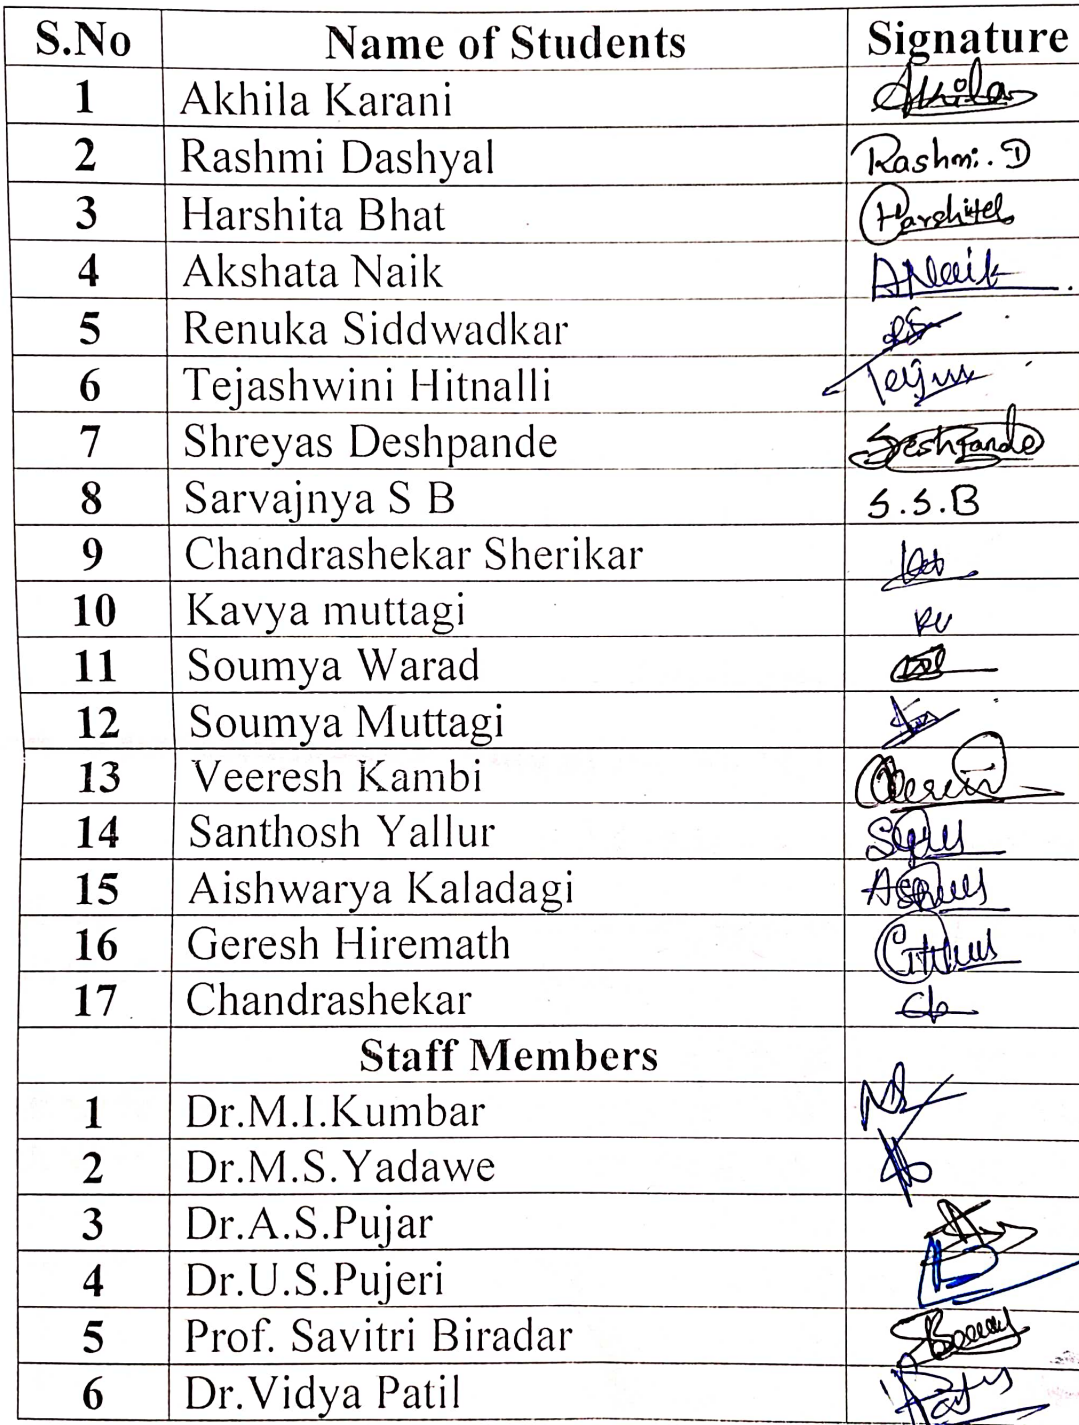 S.No Name of Students Signature
1 Akhila Karani Akhila
2 Rashmi Dashyal Rashmi.D
3 Harshita Bhat Harshita
4 Akshata Naik ANaik
5 Renuka Siddwadkar
6 Tejashwini Hitnalli
7 Shreyas Deshpande Deshpande
8 Sarvajnya S B S.S.B
9 Chandrashekar Sherikar
10 Kavya muttagi
11 Soumya Warad
12 Soumya Muttagi
13 Veeresh Kambi
14 Santhosh Yallur
15 Aishwarya Kaladagi
16 Geresh Hiremath
17 Chandrashekar
Staff Members
1 Dr.M.I.Kumbar
2 Dr.M.S.Yadawe
3 Dr.A.S.Pujar
4 Dr.U.S.Pujeri
5 Prof. Savitri Biradar
6 Dr.Vidya Patil